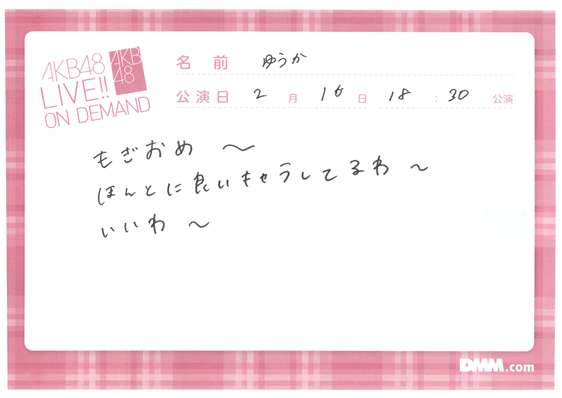 AKB48
LIVE!!
ON DEMAND
AKB
48
名前 ゆうか
公演日 2月16日 18:30 公演
もぎおめ 〜
ほんとに良いキャラしてるわ 〜
いいわ 〜
DMM.com